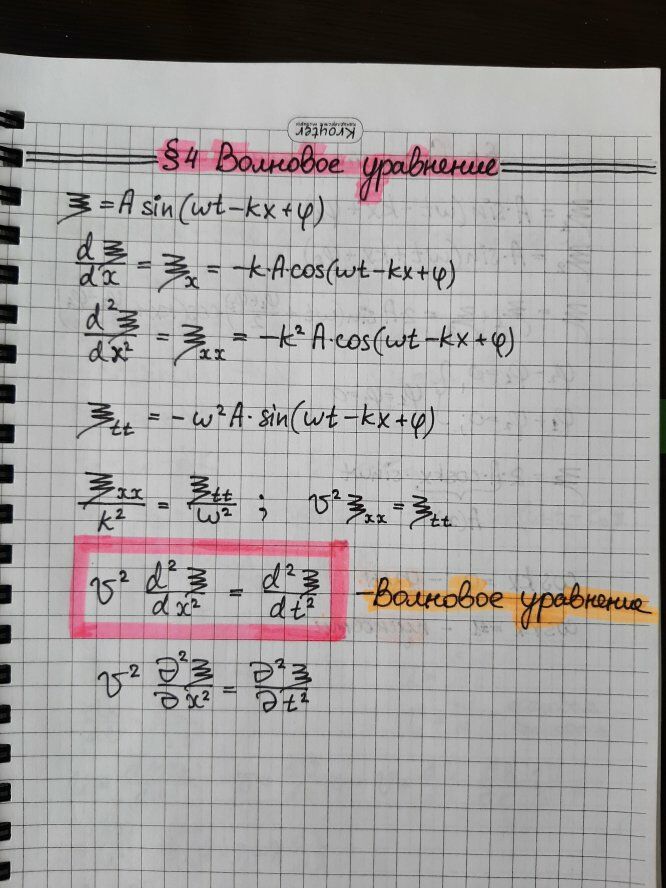 Kroyter
§4 Волновое уравнение
ξ = A sin(ωt - kx + φ)
dξ/dx = ξₓ = -k·A·cos(ωt - kx + φ)
d²ξ/dx² = ξₓₓ = -k² A·cos(ωt - kx + φ)
ξₜₜ = -ω² A·sin(ωt - kx + φ)
ξₓₓ/k² = ξₜₜ/ω² ; v² ξₓₓ = ξₜₜ
v² d²ξ/dx² = d²ξ/dt² - Волновое уравнение
v² ∂²ξ/∂x² = ∂²ξ/∂t²